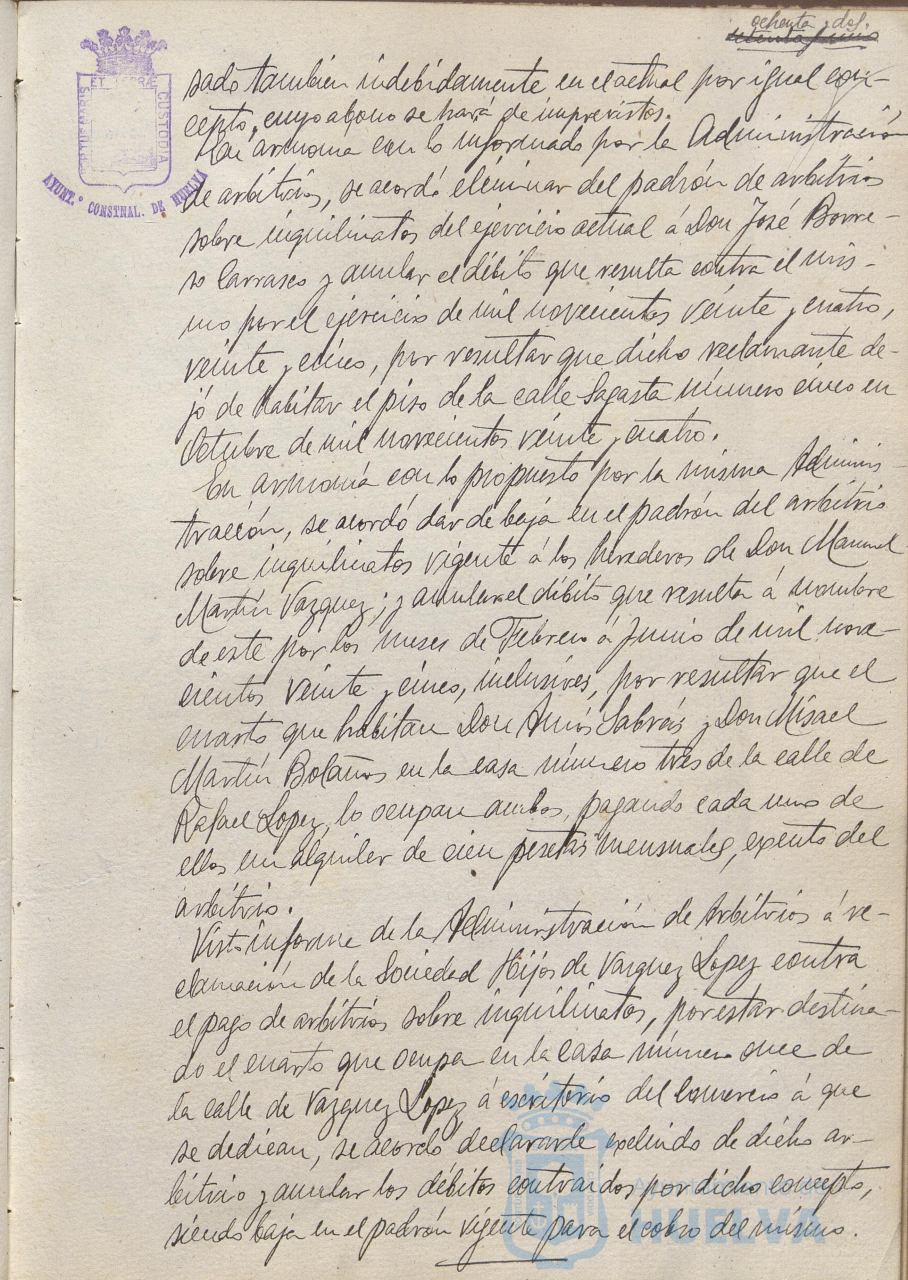 ochenta y dos.
sado también indebidamente en el actual por igual con-
cepto, cuyo abono se hará de imprevistos.
En armonia con lo informado por la Administración
de arbitrios, se acordó eliminar del padrón de arbitrios
sobre inquilinatos del ejercicio actual á Don José Borre-
ro Carrasco y anular el débito que resulta contra el mis-
mo por el ejercicio de mil novecientos veinte y cuatro,
veinte y cinco, por resultar que dicho reclamante de-
jó de habitar el piso de la calle Sagasta número cinco en
Octubre de mil novecientos veinte y cuatro.
En armonía con lo propuesto por la misma Adminis-
tracción, se acordó dar de baja en el padrón del arbitrio
sobre inquilinatos vigente á los herederos de Don Manuel
Martín Vazquez; y anular el débito que resulta á nombre
de este por los meses de Febrero á Junio de mil nove-
cientos veinte y cinco, inclusives, por resultar que el
cuarto que habitan Don Amós Sabrás y Don Misael
Martín Bolaños en la casa número tres de la calle de
Rafael Lopez, lo ocupan ambos, pagando cada uno de
ellos un alquiler de cien pesetas mensuales, exento del
arbitrio.
Visto informe de la Administración de Arbitrios á re-
clamación de la Sociedad Hijos de Vazquez Lopez contra
el pago de arbitrios sobre inquilinatos, por estar destina-
do el cuarto que ocupa en la casa número once de
la calle de Vazquez Lopez á escritorio del comercio á que
se dedican, se acordó declararde excluido de dicho ar-
bitrio y anular los débitos contraidos por dicho concepto,
siendo baja en el padrón vigente para el cobro del mismo.
CUSTODIA
AYUNT.º CONSTNAL. DE HUELVA
HUELVA